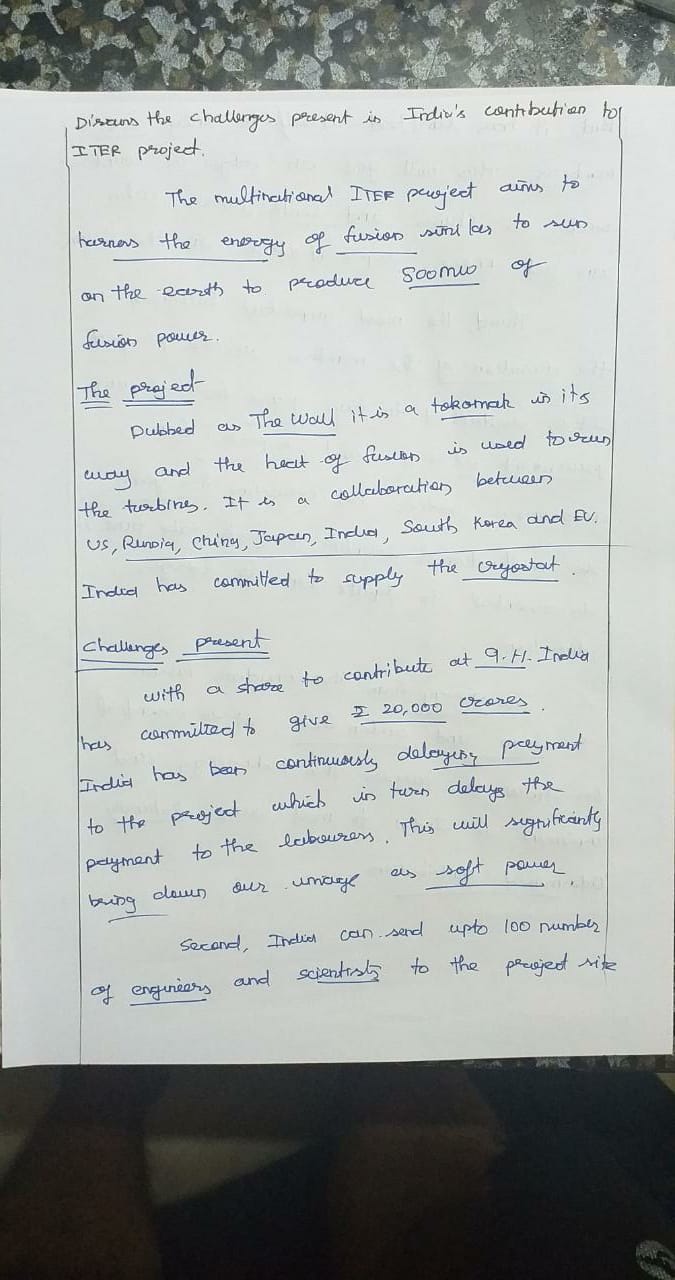 Discuss the challenges present in India's contribution to
ITER project.
The multinational ITER project aims to
harness the energy of fusion similar to sun
on the earth to produce 500MW of
fusion power.
The project
Dubbed as The Wall it is a tokomak in its
way and the heat of fusion is used to run
the turbines. It is a collaboration between
US, Russia, China, Japan, India, South Korea and EU.
India has committed to supply the cryostat.
Challenges present
with a share to contribute at 9.1%. India
has committed to give ₹ 20,000 crores.
India has been continuously delaying payment
to the project which in turn delays the
payment to the labourers. This will significantly
bring down our image as soft power.
Second, India can send upto 100 number
of engineers and scientists to the project site